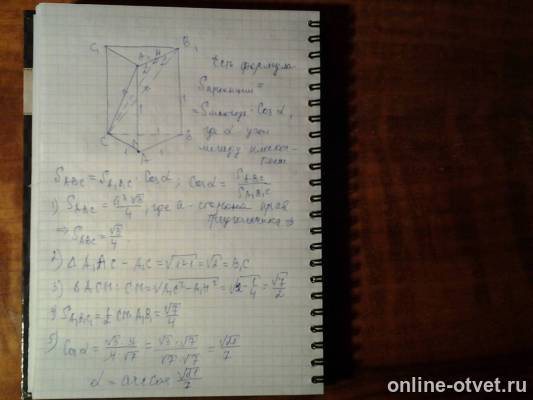 C₁ A₁ H B₁
C A B
Есть формула
Sпроекции =
= · cos α,
где α угол
между
S_ABC = S_A₁B₁C · cos α; cos α = S_ABC / S_A₁B₁C
1) S_ABC = a²√3/4, где a – сторона прав.
треугольника ⇒
⇒ S_ABC = √3/4
2) Δ A₁AC – A₁C = √1+1 = √2 = B₁C
3) Δ A₁CH: CH = √A₁C² – A₁H² = √2 – 1/4 = √7/2
4) S_A₁B₁C = 1/2 CH · A₁B₁ = √7/4
5)
cos α = √3 · 4 / 4 · √7 = √3 · √7 / √7 · √7 = √21/7
α = arccos √21/7
online-otvet.ru